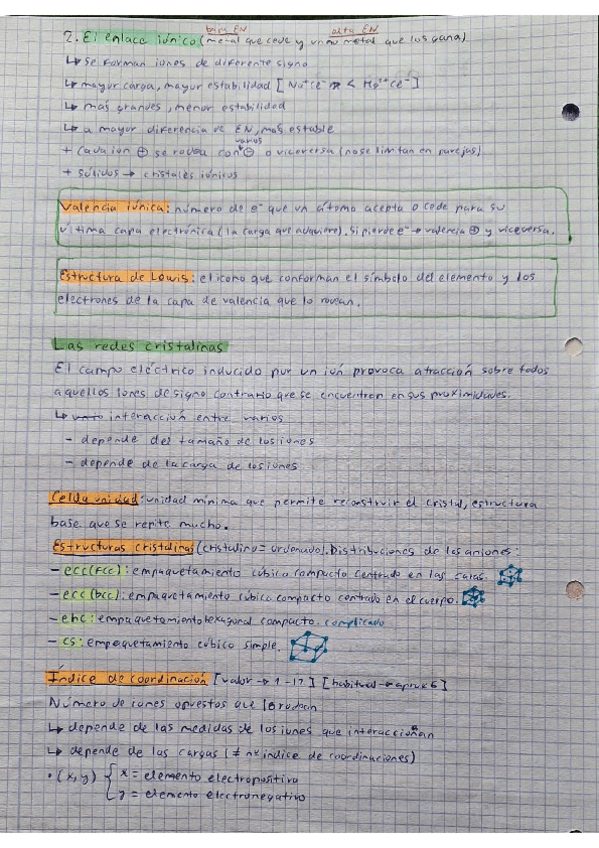 baja EN alta EN
2. El enlace iónico (metal que cede y un no metal que los gana)
↳ se forman iones de diferente signo
↳ mayor carga, mayor estabilidad [Na⁺Cl⁻ < Mg²⁺Cl⁻]
↳ más grandes, menor estabilidad
↳ a mayor diferencia de EN, más estable
+ cada ion ⊕ se rodea con varios ⊖ o viceversa (no se limitan en parejas)
+ sólidos → cristales iónicos
Valencia iónica: número de e⁻ que un átomo acepta o cede para su
última capa electrónica (la carga que adquiere). Si pierde e⁻ → valencia ⊕ y viceversa.
Estructura de Lewis: el icono que conforman el símbolo del elemento y los
electrones de la capa de valencia que lo rodean.
Las redes cristalinas
El campo eléctrico inducido por un ión provoca atracción sobre todos
aquellos iones de signo contrario que se encuentren en sus proximidades.
↳ interacción entre varios
- depende del tamaño de los iones
- depende de la carga de los iones
Celda unidad: unidad mínima que permite reconstruir el cristal, estructura
base que se repite mucho.
Estructuras cristalinas (cristalino = ordenado). Distribuciones de los aniones:
- ecc (fcc): empaquetamiento cúbico compacto centrado en las caras.
- ecc (bcc): empaquetamiento cúbico compacto centrado en el cuerpo.
- ehc: empaquetamiento hexagonal compacto. complicado
- cs: empaquetamiento cúbico simple.
Índice de coordinación [valor → 1-12] [habitual → aprox 6]
Número de iones opuestos que lo rodean
↳ depende de las medidas de los iones que interaccionan
↳ depende de las cargas (≠ nº índice de coordinaciones)
• (x, y) { x = elemento electropositivo
y = elemento electronegativo